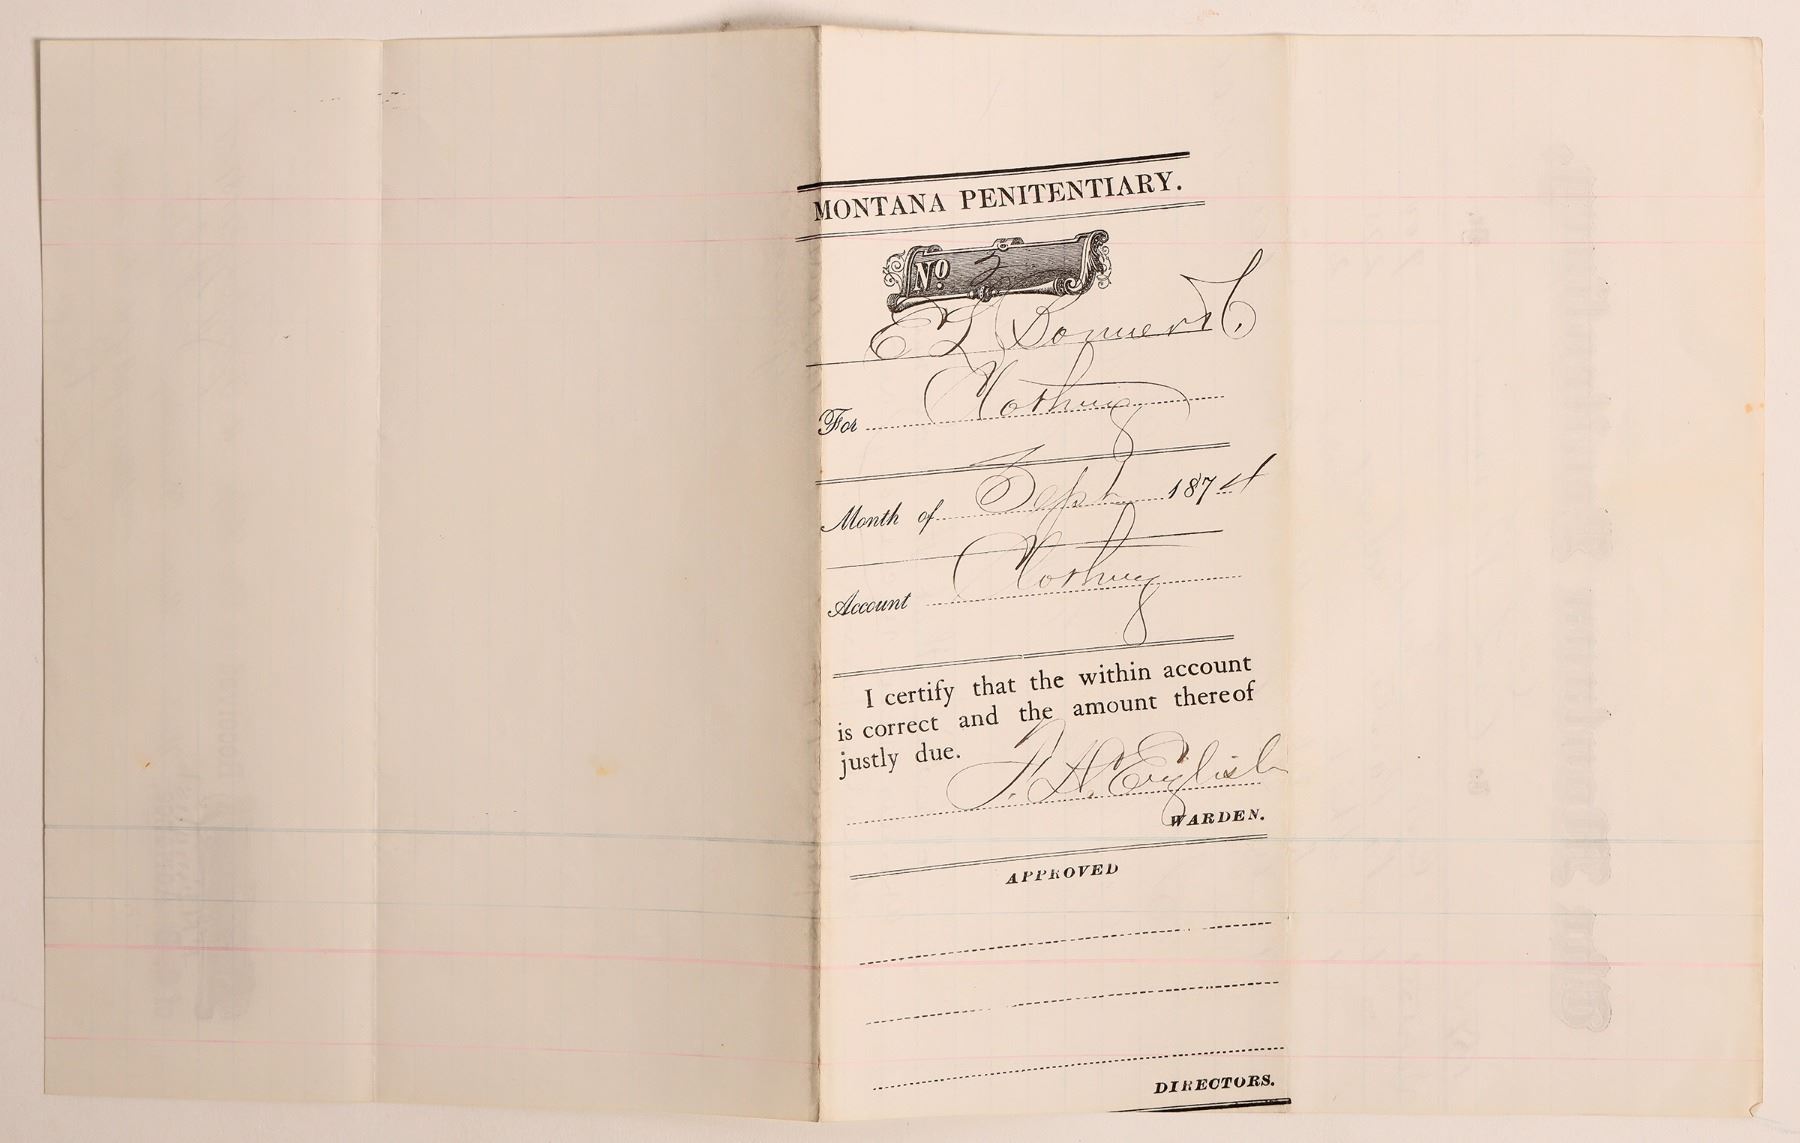 MONTANA PENITENTIARY.
No. 3
E L Bonner & Co.
For Clothing
Month of Sept 1874
Account Clothing
I certify that the within account
is correct and the amount thereof
justly due.
F. H. English
WARDEN.
APPROVED
DIRECTORS.